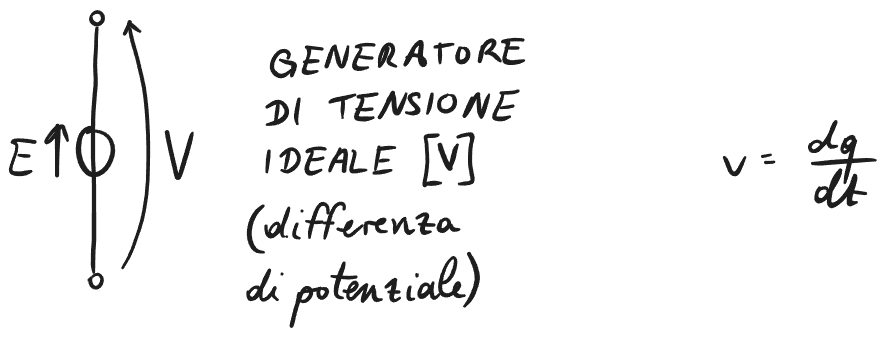 GENERATORE
DI TENSIONE
E V IDEALE [V]
(differenza
di potenziale)
v = dq/dt